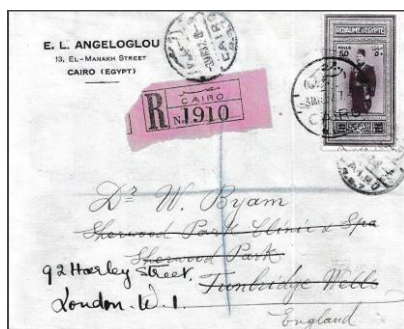 E. L. ANGELOGLOU
13, EL-MANAKH STREET
CAIRO (EGYPT)
CAIRO
ROYAUME D'EGYPTE
MILLS 50
R
مصر
CAIRO
No 1910
CAIRO
CAIRO
Dr W. Byam
Sherwood Park Clinic & Spa
Sherwood Park
92 Harley Street, Tunbridge Wells
London. W. 1.
England